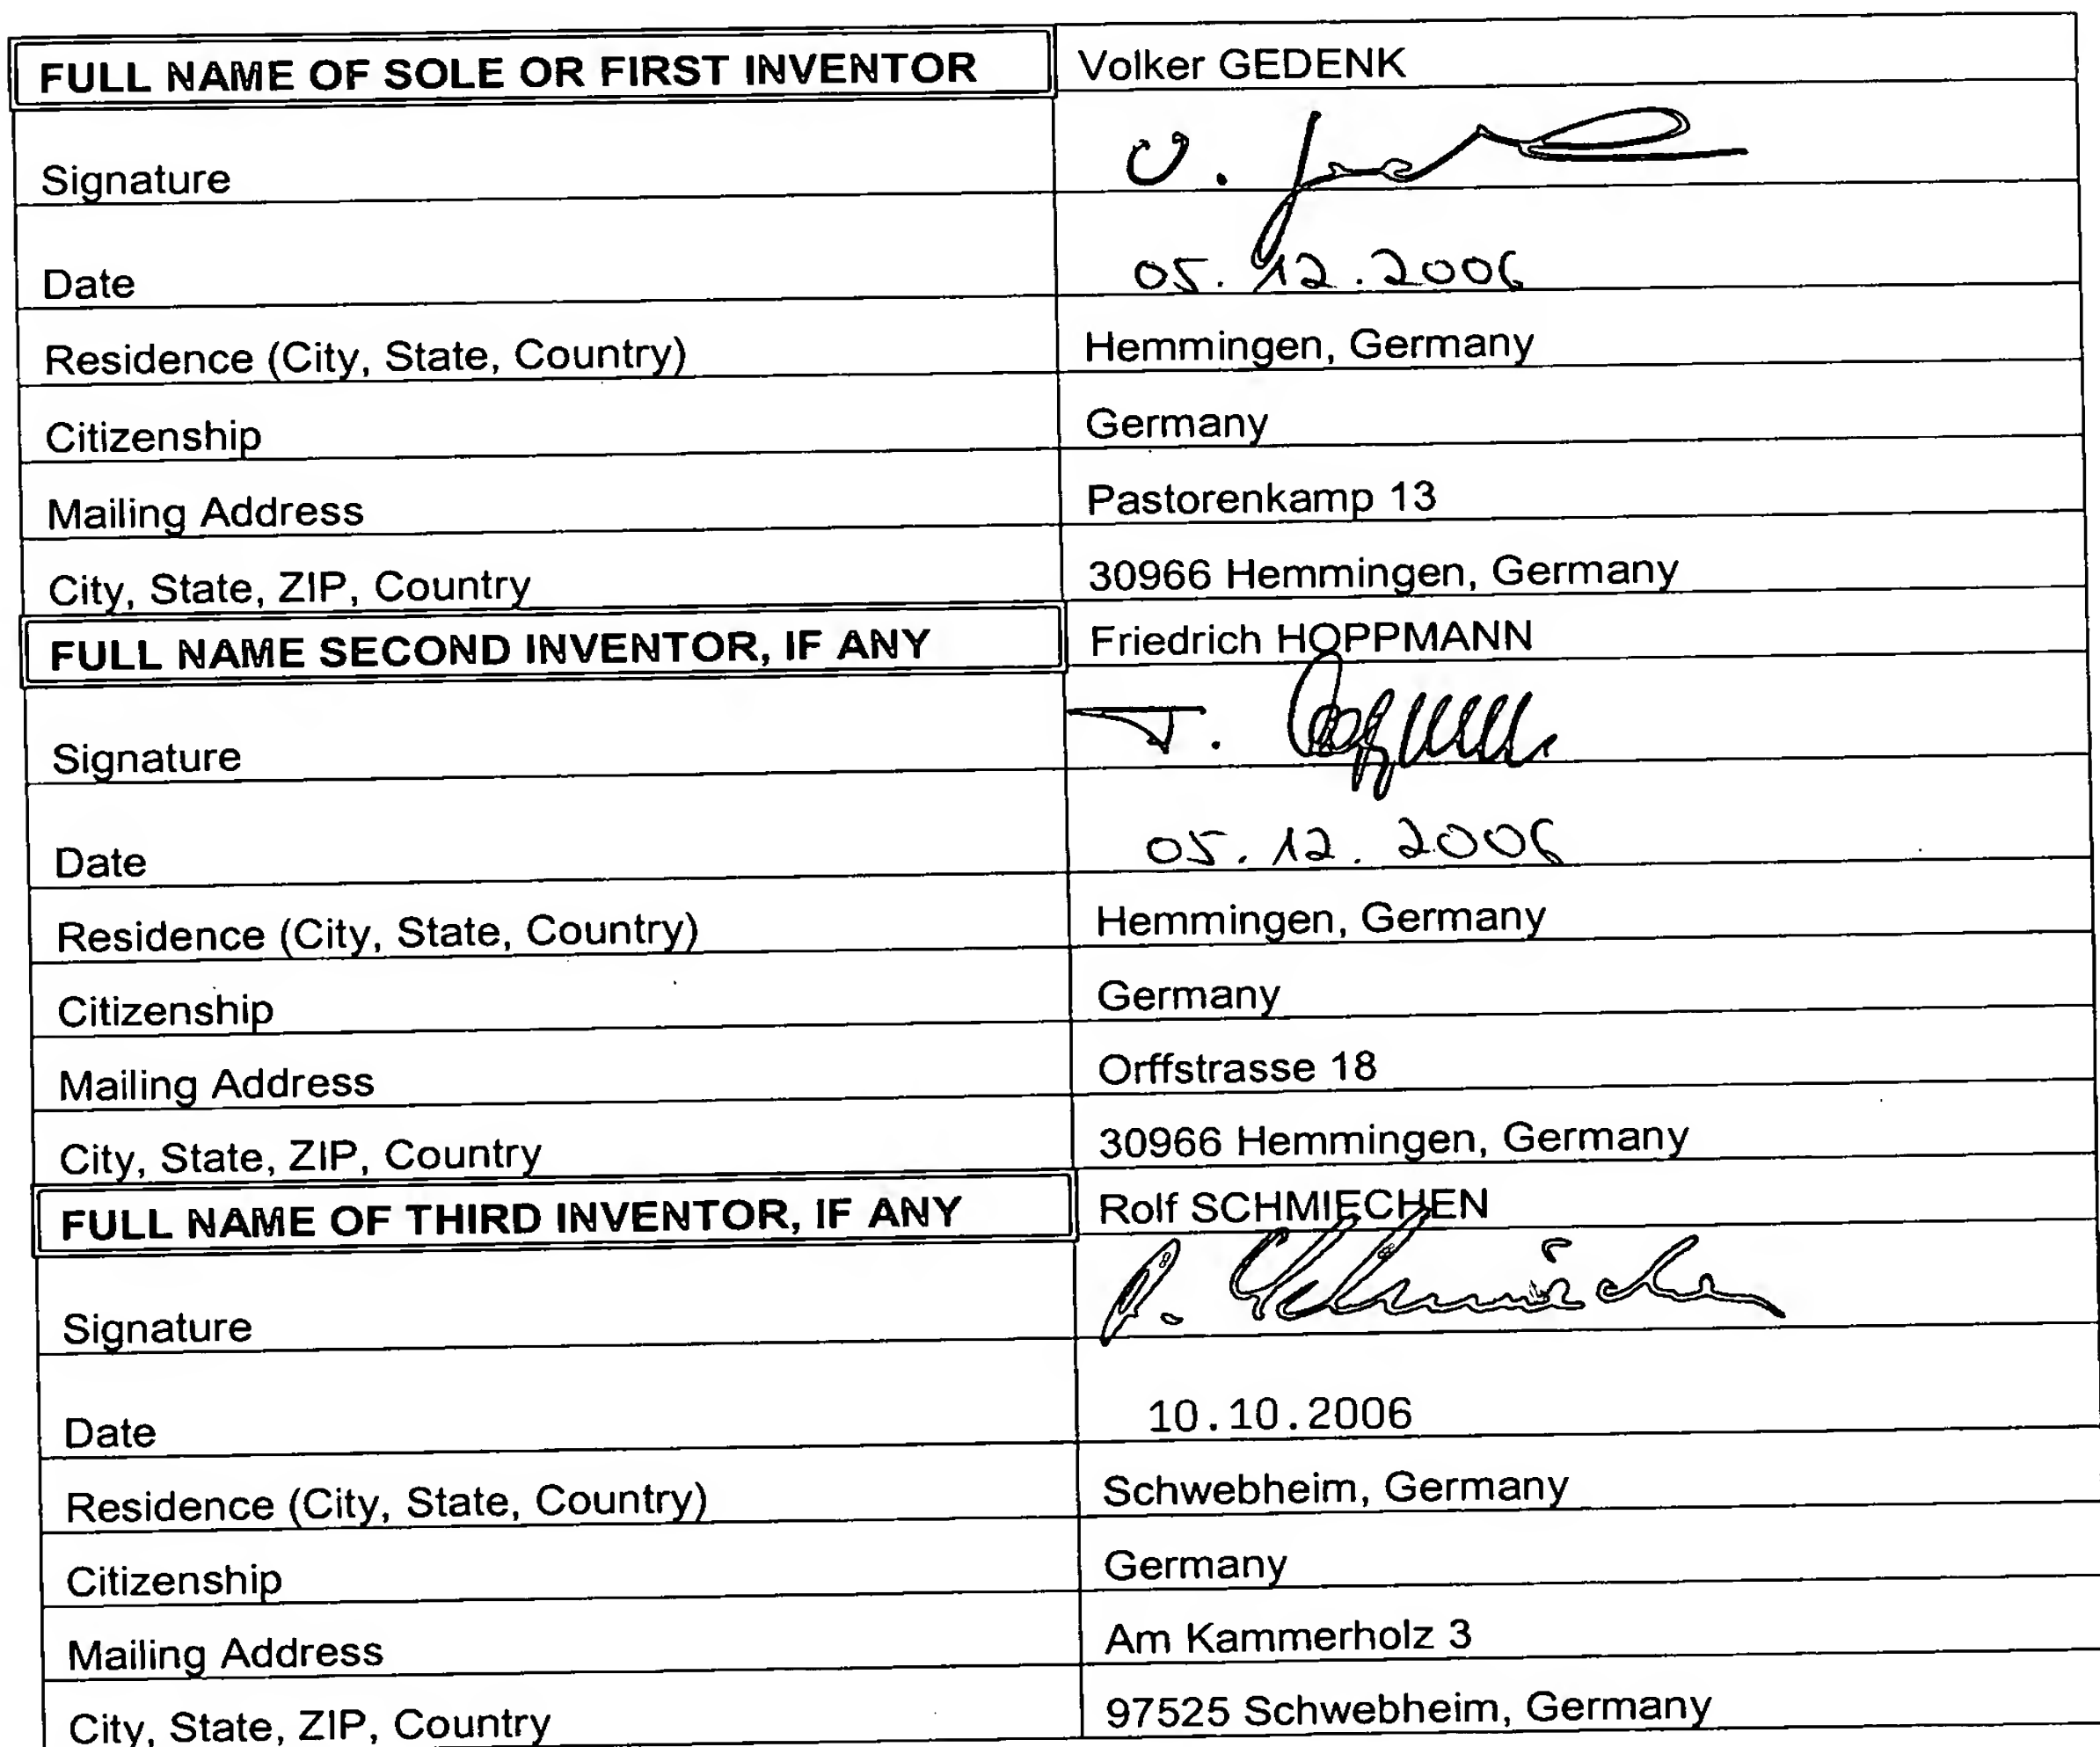 FULL NAME OF SOLE OR FIRST INVENTOR Volker GEDENK
Signature V.
Date 05.12.2006
Residence (City, State, Country) Hemmingen, Germany
Citizenship Germany
Mailing Address Pastorenkamp 13
City, State, ZIP, Country 30966 Hemmingen, Germany
FULL NAME SECOND INVENTOR, IF ANY Friedrich HOPPMANN
Signature F.
Date 05.12.2006
Residence (City, State, Country) Hemmingen, Germany
Citizenship Germany
Mailing Address Orffstrasse 18
City, State, ZIP, Country 30966 Hemmingen, Germany
FULL NAME OF THIRD INVENTOR, IF ANY Rolf SCHMIECHEN
Signature R. Schmiechen
Date 10.10.2006
Residence (City, State, Country) Schwebheim, Germany
Citizenship Germany
Mailing Address Am Kammerholz 3
City, State, ZIP, Country 97525 Schwebheim, Germany